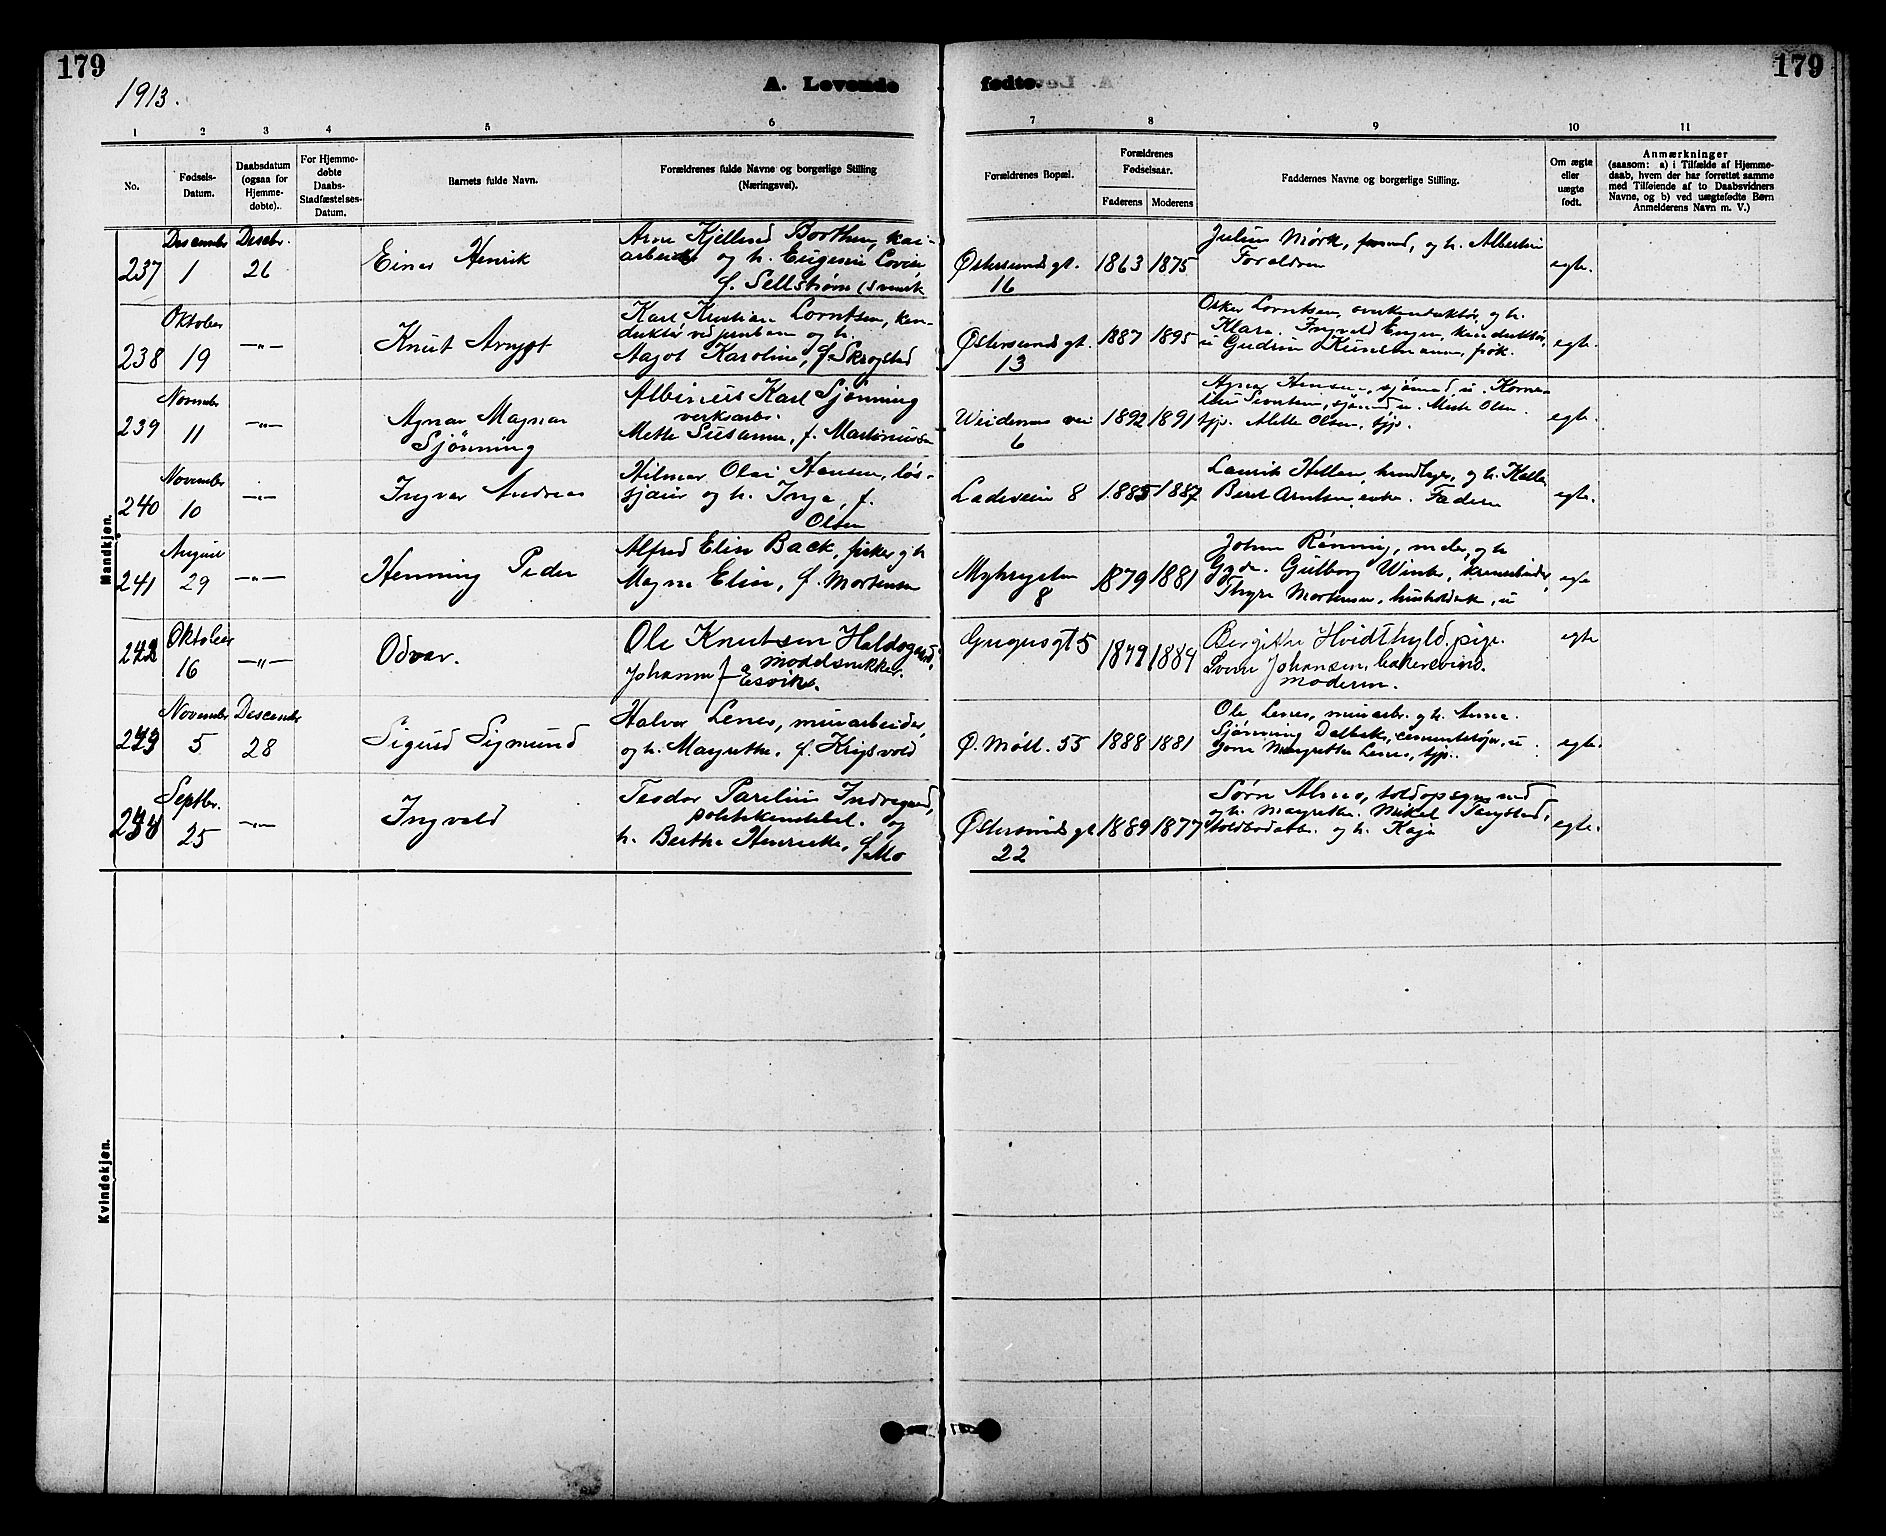 179
179
1913.
A. Levende
fødte.
1
2
3
4
5
6
7
8
9
10
11
No.
Fødsels-
Datum.
Daabsdatum
(ogsaa for
Hjemme-
døbte).
For Hjemme-
døbte
Daabs-
Stadfæstelses-
Datum.
Barnets fulde Navn.
Forældrenes fulde Navne og borgerlige Stilling
(Næringsvei).
Forældrenes Bopæl.
Forældrenes
Fødselsaar.
Faderens
Moderens
Faddernes Navne og borgerlige Stilling.
Om ægte
eller
uægte
født.
Anmærkninger
(saasom: a) i Tilfælde af Hjemme-
daab, hvem der har forrettet samme
med Tilføiende af to Daabsvidners
Navne, og b) ved uægtefødte Børn
Anmelderens Navn m. V.)
Mandkjøn.
237
Descember
1
Descbr.
26
Einar Henrik
Arne Kjellend Borthen, kai-
arbeider og h. Eugenie Lovise
f. Sellstrøm (svensk
Østersundsgt.
16
1863
1875
Julius Mørk, formand, og h. Albertine
Foreldren
egte.
238
Oktober
19
—"—
Knut Arnygt
Karl Kristian Lorntsen, kon-
duktør ved jernbanen og h.
Aagot Karoline, f. Skrogstad
Østersundsgt.
13
1887
1895
Oskar Lorntsen, overkonduktør, og h.
Klara. Ingvald Engen, konduktør,
u Gudrun Kunstmann, frøk.
egte.
239
November
11
—"—
Agnar Magnar
Sjönning
Albinus Karl Sjönning
verksarb.
Mette Susanne, f. Martinussen
Weidemans vei
6
1892
1891
Agnar Hansen, sjömand, u. Korne-
lius Sivertsen, sjömd, u. Olsen
tjp. Alette Olsen, tjp.
egte.
240
November
10
—"—
Ingvar Andreas
Hilmar Olai Hansen, løs-
sjauer og h. Inga, f.
Olsen
Ladeveien 8
1885
1887
Laurits Hellan, og h.
Beret Arntsen, enke. Faderen
egte.
241
August
29
—"—
Henning Peder
Alfred Elin Back, fisker og h
Magna Elise, f. Mortensen
8
1879
1881
Johan Rönning, maler, og h
Gyda. Gulborg Winter,
Thyra Mortensen, u
egte
242
Oktober
16
—"—
Odvar.
Ole Knutsen Haldogard,
modelsnekker.
Johanne f. Esvik.
Gregusgt 5
1879
1884
Bergitte Hvidthyld. pige.
Sverre Johansen, bakersvend.
moderen.
egte
243
November
5
Descember
28
Sigurd Sigmund
Halvor Lenes, murarbeider,
og h. Margrethe, f. Krigsvold
Ø. Möll. 55
1888
1881
Ole Lenes, murarb. og h. Anna.
Sjønning Dalbak, cementstøper, u
Margrethe Lenes, tjp.
egte.
244
Septbr.
25
—"—
Ingvald
Teodor Parelius Indregaard,
politikonstabel. og
h. Berthe Henrikke, f. Mo
Østersundsgt
22
1889
1877
Sørn Almo, toldopsynsmd
og h. Margrethe. Mikal Tangstad,
toldbodarb. og h. Kaja
egte.
Kvindekjøn.